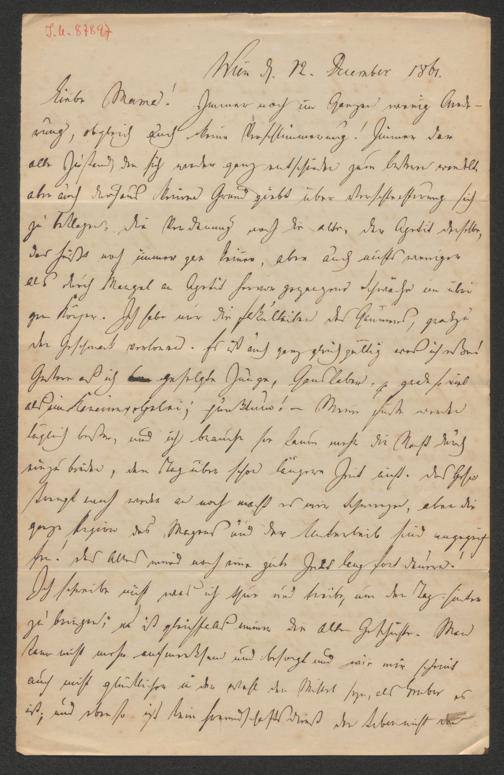 I.N. 87897
Wien d. 12. December 1861.
Liebe Mama! Immer noch im Ganzen wenig Ände-
rung, obgleich auch keine Verschlimmerung! Immer der
alte Zustand, der sich weder ganz entschieden zum bessern wendet
aber auch durchaus keinen Grund giebt über Verschlechterung sich
zu beklagen. Die Verdauung noch die alte, der Apetit derselbe,
das heißt noch immer gar keiner, aber auch nichts weniger
als durch Mangel an Apetit hervor gegangene Schwäche im übri
gen Körper. Ich habe nur die des Gaumens, gradezu
den Geschmack verloren. Es ist auch ganz gleichgültig was ich esse!
Gestern aß ich geselchte Zunge, Gansleber,
als ein ! – Meine Füße werden
täglich besser, und ich brauche sie kaum mehr die Nacht durch
einzubinden, den Tag über schon längere Zeit nicht. Das Gehen
strengt mich weder an noch macht es mir Schmerzen, aber die
ganze Region des Magens und der Unterleib sind angegrif
fen! Das Alles wird noch eine gute Zeit lang fort dauern.
Ich schreibe nicht was ich thue und treibe, um den Tag hinter
zu bringen; es ist gleichfalls immer die alte Geschichte. Man
kann nicht mehr aufmerksam und besorgt und wie mir scheint
auch nicht glücklicher in der Wahl der Mittel sein, als Gruber es
ist, und ebenso ist kein Freundschaftsdienst der Lebenden